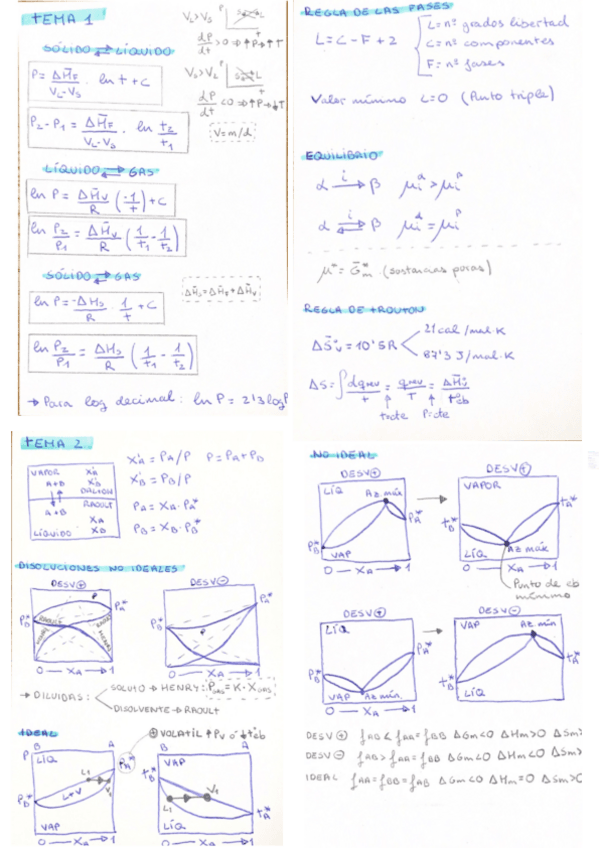 TEMA 1
VL>VS P S L
dP/dt >0 ⇒ ↑P→↑T
SÓLIDO ⇄ LÍQUIDO
P = ΔH̄F / VL-VS · ln t + C
VS>VL P S L
dP/dt <0 ⇒ ↑P→↓T
P2-P1 = ΔH̄F / VL-VS · ln t2/t1
V=m/d
LÍQUIDO ⇄ GAS
ln P = ΔH̄V / R (-1/t) + C
ln P2/P1 = ΔH̄V / R (1/t1 - 1/t2)
SÓLIDO ⇄ GAS
ΔH̄S = ΔH̄F + ΔH̄V
ln P = -ΔHS / R · 1/t + C
ln P2/P1 = ΔHS / R (1/t1 - 1/t2)
→ Para log decimal: ln P = 2'3 log P
REGLA DE LAS FASES
L = C - F + 2
L = nº grados libertad
C = nº componentes
F = nº fases
Valor mínimo L=0 (Punto triple)
EQUILIBRIO
α →i β μiα > μiβ
α ⇄i β μiα = μiβ
μ* = Ḡm* (sustancias puras)
REGLA DE TROUTON
ΔS̄V = 10'5R
21 cal/mol·K
87'3 J/mol·K
ΔS = ∫ dqrev / t = qrev / T = ΔH̄V / t°eb
t=cte P=cte
TEMA 2
VAPOR X'A
A+B X'B
DALTON
RAOULT
A+B
XA
LÍQUIDO XB
X'A = PA/P P = PA+PB
X'B = PB/P
PA = XA·PA*
PB = XB·PB*
DISOLUCIONES NO IDEALES
DESV ⊕
P
PB* PA*
RAOULT RAOULT
HENRY HENRY
0 — XA → 1
DESV ⊖
PB* P PA*
0 — XA → 1
→ DILUIDAS:
SOLUTO → HENRY: PGAS = K·XGAS
DISOLVENTE → RAOULT
IDEAL
⊕ VOLATIL ↑Pv o ↓t°eb
B A
P LÍQ PA*
L1 V1
L+V
PB*
VAP
0 — XA → 1
B A
VAP
tB*
L1 V1
tA*
LÍQ
0 — XA → 1
NO IDEAL
DESV ⊕
LÍQ Az máx
PA*
PB*
VAP
0 — XA → 1
DESV ⊕
VAPOR
tA*
tB*
LÍQ Az máx
0 — XA → 1
Punto de eb mínimo
DESV ⊖
LÍQ
PA*
PB*
VAP Az mín
0 — XA → 1
DESV ⊖
VAP Az mín
tA*
tB*
LÍQ
0 — XA → 1
DESV ⊕ fAB < fAA = fBB ΔGm<0 ΔHm>0 ΔSm>
DESV ⊖ fAB > fAA = fBB ΔGm<0 ΔHm<0 ΔSm>
IDEAL fAA = fBB = fAB ΔGm<0 ΔHm=0 ΔSm>0